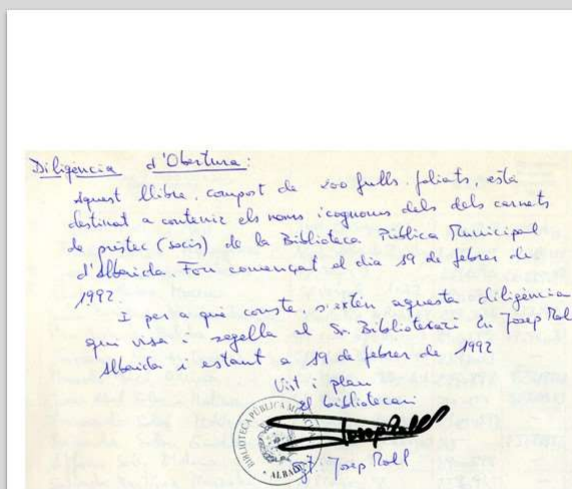 Diligència d'Obertura:
Aquest llibre, compost de 200 fulls foliats, esta
destinat a contenir els noms i cognoms dels dels carnets
de prestec (socis) de la Biblioteca Pública Municipal
d'Albarida. Fou començat el dia 19 de febrer de
1992.
I per a què conste, s'extén aquesta diligència
que visa i segella el Sr. Bibliotecari En Josep Roll
Albarida i estant a 19 de febrer de 1992
Vist i plau
el bibliotecari
BIBLIOTECA PÚBLICA
Josep Roll
Josep Roll